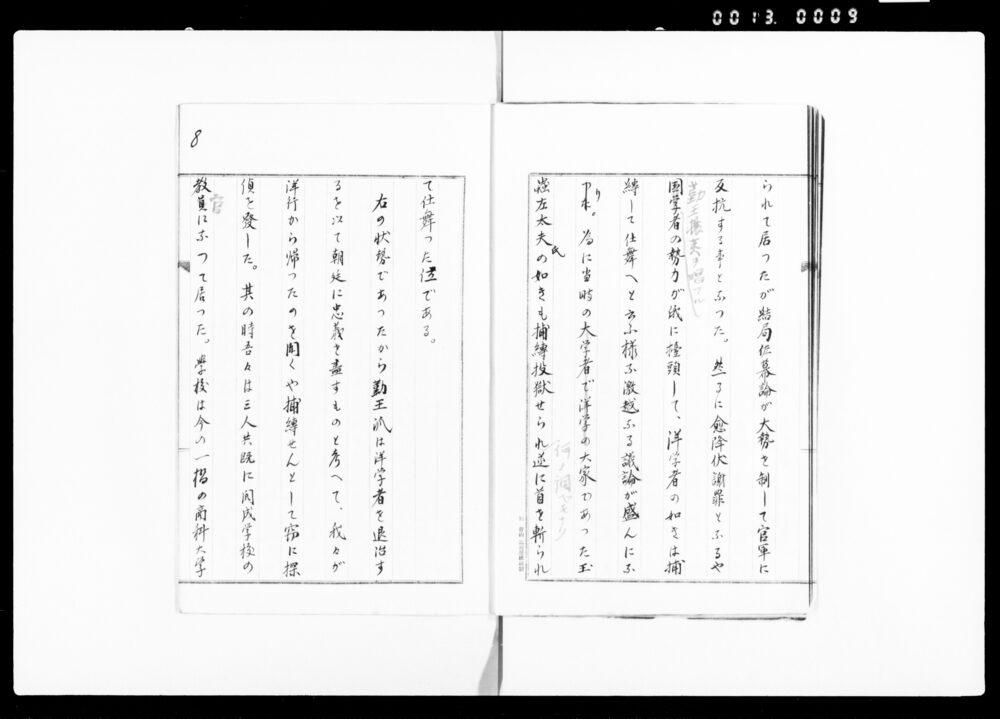 0013. 0009
られて居ったが結局佐幕論が大勢を制して官軍に
反抗する事となった。然るに愈降伏謝罪となるや
勤王攘夷ヲ唱フル
国学者の勢力が俄に擡頭して、洋学者の如きは捕
縛して仕舞へと云ふ様な激越なる議論が盛んにな
り
り来。為に当時の大学者で洋学の大家であった玉
氏
蟲左太夫の如きも捕縛投獄せられ遂に首を斬られ
8
て仕舞った位である。
右の状勢であったから勤王派は洋学者を退治す
るを以て朝廷に忠義を盡すものと考へて、我々が
洋行から帰ったのを聞くや捕縛せんとして窃に探
偵を發した。其の時吾々は三人共既に開成学校の
官
教員になつて居った。学校は今の一橋の商科大学